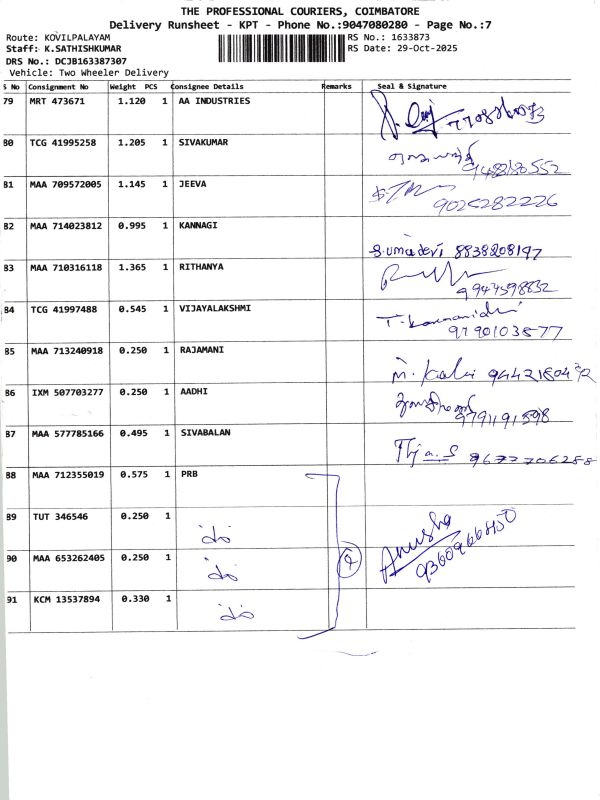 THE PROFESSIONAL COURIERS, COIMBATORE
Delivery Runsheet - KPT - Phone No.:9047080280 - Page No.:7
Route: KOVILPALAYAM
RS No.: 1633873
Staff: K.SATHISHKUMAR
RS Date: 29-Oct-2025
DRS No.: DCJB163387307
Vehicle: Two Wheeler Delivery
S No Consignment No Weight PCS Consignee Details Remarks Seal & Signature
79 MRT 473671 1.120 1 AA INDUSTRIES
80 TCG 41995258 1.205 1 SIVAKUMAR
81 MAA 709572005 1.145 1 JEEVA
9026282226
82 MAA 714023812 0.995 1 KANNAGI
S.umadevi 8838208197
83 MAA 710316118 1.365 1 RITHANYA
9944598832
84 TCG 41997488 0.545 1 VIJAYALAKSHMI
9790103577
85 MAA 713240918 0.250 1 RAJAMANI
86 IXM 507703277 0.250 1 AADHI
9791191598
87 MAA 577785166 0.495 1 SIVABALAN
9677706288
88 MAA 712355019 0.575 1 PRB
89 TUT 346546 0.250 1
Anusha
90 MAA 653262405 0.250 1
91 KCM 13537894 0.330 1